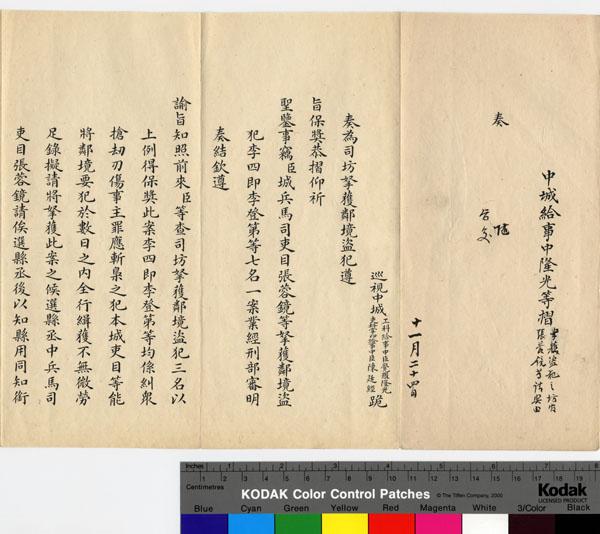 中城給事中隆光等摺
張蓉鏡
奏
隨
交
十一月二十四日
巡視中城
工科給事中臣覺羅隆光
給事中臣陳廷經
跪
奏為司坊拏獲鄰境盜犯遵
旨保獎恭摺仰祈
聖鑒事竊臣城兵馬司吏目張蓉鏡等拏獲鄰境盜
犯李四即李登第等七名一案業經刑部審明
奏結欽遵
諭旨知照前來臣等查司坊拏獲鄰境盜犯三名以
上例得保獎此案李四即李登第等均係糾衆
搶刼刃傷事主罪應斬梟之犯本城吏目等能
將鄰境要犯於數日之內全行緝獲不無微勞
足錄擬請將拏獲此案之候選縣丞中兵馬司
吏目張蓉鏡請俟選縣丞後以知縣用同知銜
Inches
Centimetres
1 2 3 4 5 6 7 8
1 2 3 4 5 6 7 8 9 10 11 12 13 14 15 16 17 18 19
KODAK Color Control Patches
© The Tiffen Company, 2000
Kodak
LICENSED PRODUCT
Blue Cyan Green Yellow Red Magenta White 3/Color Black